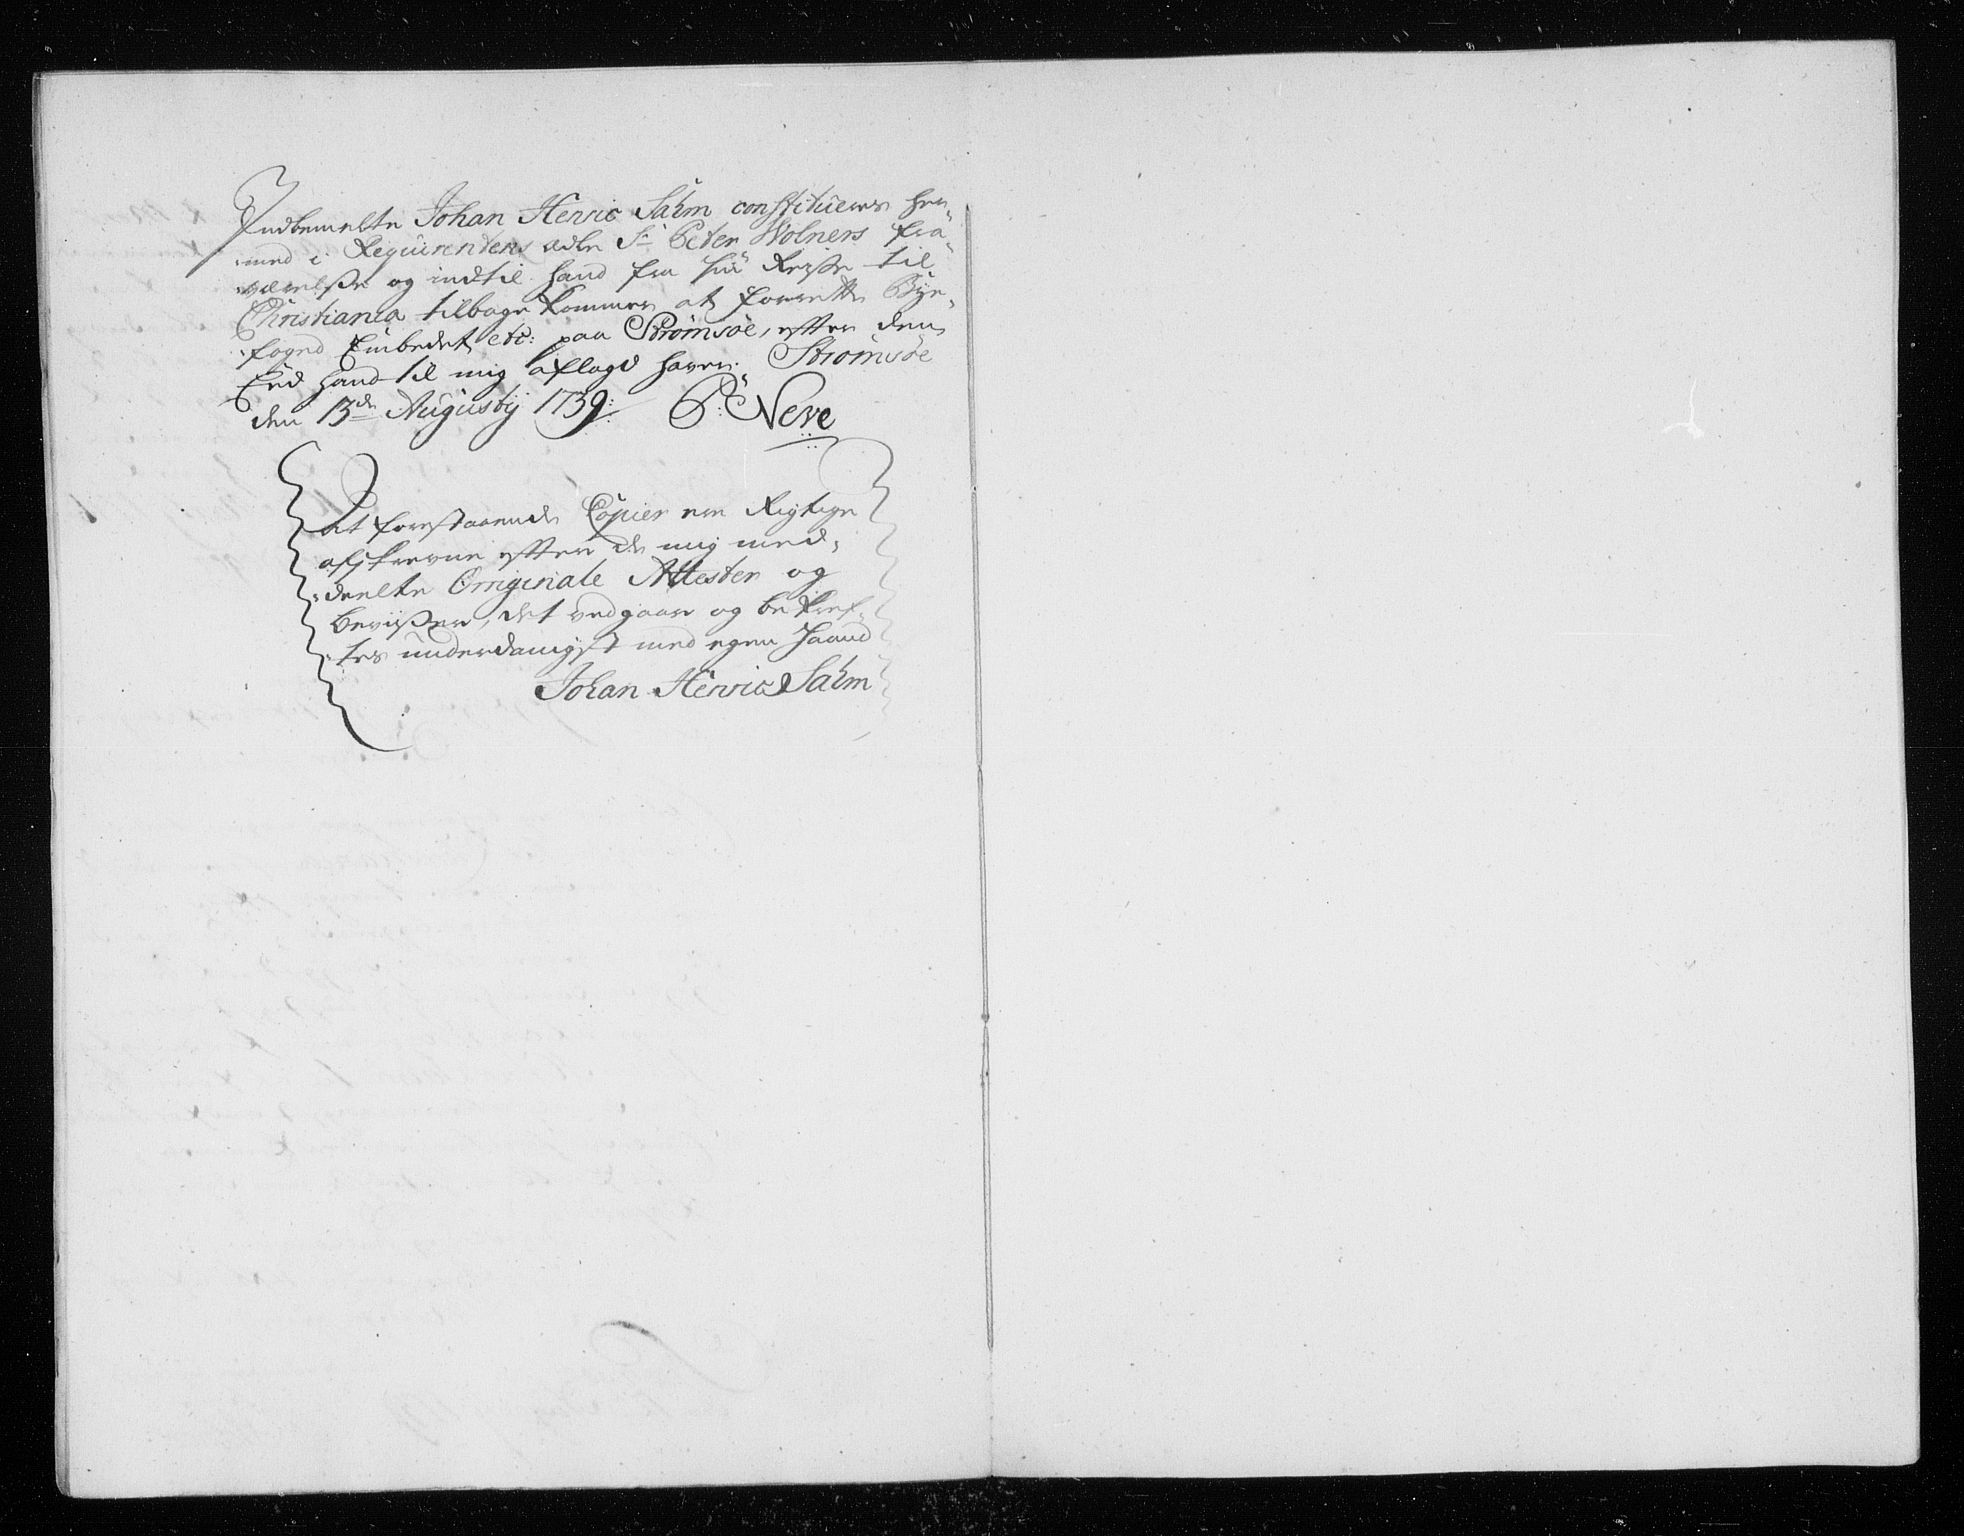 Indbemelte Johan Henric Sahm constitueres her-
med i Reqvirentens ædle Sr Peter Wolners fra-
værelsse og indtil hand fra sin Reisse til
Christiania tilbage kommer at forrette Bye-
foged Embedet etc: paa Strømsøe, efter den
Eed hand til mig aflagt haver. Strømsøe
den 13de Augustij 1739: P: Neve
At forestaaende Copier ere Rigtige
afskrevne efter de mig med-
deelte Originale Attester og
Beviisser, det vedgaar og bekref-
tes underdanigst med egen Haand
Johan Henric Sahm